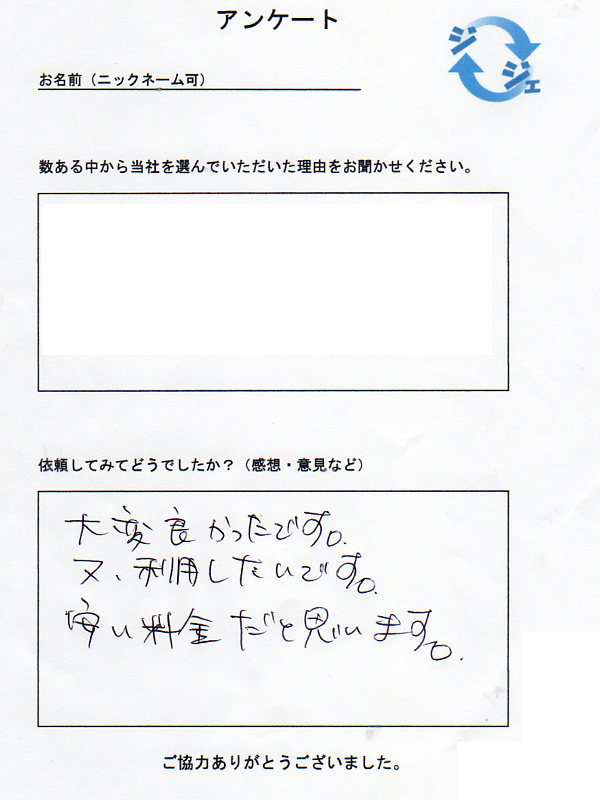 アンケート
ジジェ
お名前（ニックネーム可）
数ある中から当社を選んでいただいた理由をお聞かせください。
依頼してみてどうでしたか？（感想・意見など）
大変良かったです。
又、利用したいです。
安い料金だと思います。
ご協力ありがとうございました。